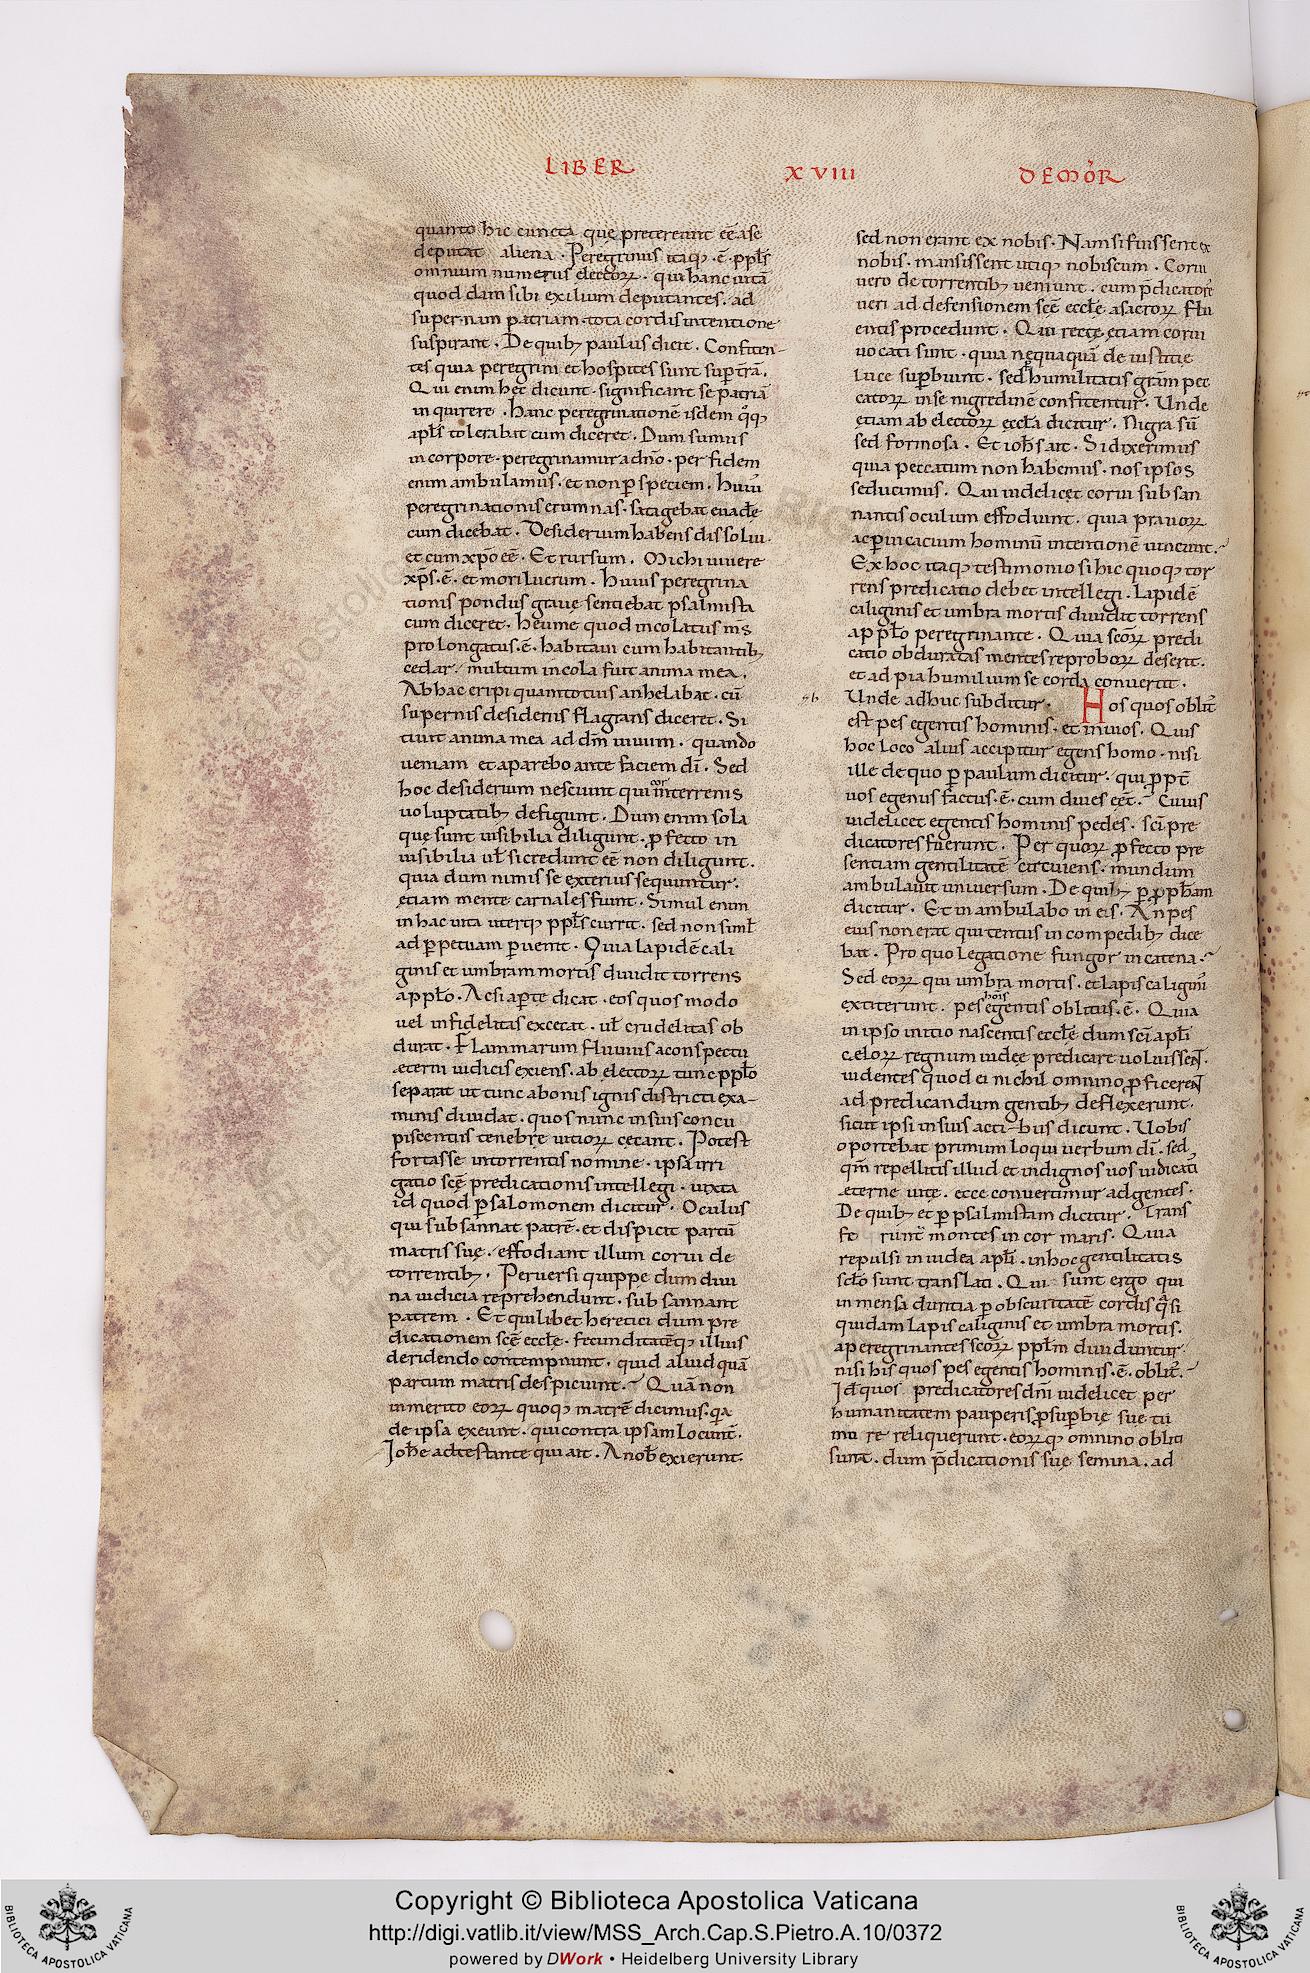 LIBER XVIII DE MOR̄
quanto hic cuncta quę preterеunt eē a se
deputat aliena. Peregrinus itaq; .ē. ppl̄s
omnium numerus electorꝝ. qui hanc uitā
quoddam sibi exilium deputantes. ad
supernam patriam tota cordis intentione
suspirant. De quib; paulus dicit. Confiten-
tes quia peregrini et hospites sunt sup̱ t̄rā.
Qui enim hęc dicunt. significant se patriā
inquirere. hanc peregrinationē isdem q̊q;
apl̄s tolerabat cum diceret. Dum sumus
in corpore. peregrinamur a dn̄o. per fidem
enim ambulamus. et non ꝑ speciem. huiꝰ
peregrinationis erumnas. satagebat euadę̄
cum dicebat. Desiderium habens dissolui.
et cum xp̄o eē. Et rursum. Michi uiuere
xp̄s .ē. et mori lucrum. huius peregrina
tionis pondus graue sentiebat psalmista
cum diceret. heu me quod incolatus m̄s
prolongatus .ē. habitaui cum habitantib;
cedar. multum incola fuit anima mea.
Ab hac eripi quantotius anhelabat. cū
supernis desideriis flagrans diceret. Si
tiuit anima mea ad dm̄ uiuum. quando
ueniam et aparebo ante faciem dī. Sed
hoc desiderium nesciunt qui cor in terrenis
uoluptatib; defigunt. Dum enim sola
quę sunt uisibilia diligunt. ꝓfecto in
uisibilia ul̄ si credunt eē non diligunt.
quia dum nimis se exterius sequuntur.
ętiam mente carnales fiunt. Simul enim
in hac uita uterq; ppl̄s currit. sed non siml̄
ad ꝑpetuam ꝑuenit. Quia lapidē cali
ginis et umbram mortis diuidit torrens
a ppl̄o. Ac si aꝑte dicat. eos quos modo
uel infidelitas excecat. ul̄ crudelitas ob
durat. Flammarum fluuius a conspectu
ęterni iudicis exiens. ab electorꝝ tunc ppl̄o
separat ut tunc a bonis ignis districti exa-
minis diuidat. quos nunc in suis concu
piscentiis tenebrę uitiorꝝ cęcant. Potest
fortasse in torrentis nomine. ipsa irri
gatio scę̄ predicationis intellegi. iuxta
id quod ꝑ salomonem dicitur. Oculus
qui subsannat patrē. et dispicit partū
matris suę. effodiant illum corui de
torrentib;. Peruersi quippe dum diui
na iudicia reprehendunt. subsannant
patrem. Et quilibet heretici dum pre
dicationem scę̄ eccl̄ę. fecunditatēq; illius
deridendo contempnunt. quid aliud quā
partum matris despiciunt. Quā non
inmerito eorꝝ quoq; matrē dicimus. q̄a
de ipsa exeunt. qui contra ipsam locunt̄.
Ioh̄e adtestante qui ait. A nob̄ exierunt.
sed non erant ex nobis. Nam si fuissent ex
nobis. mansissent utiq; nobiscum. Corui
uero de torrentib; ueniunt. cum p̄dicatorē
ueri ad defensionem scę̄ eccl̄ę. a sacrorꝝ flu
entis procedunt. Qui rectę etiam corui
uocati sunt. quia nequaquā de iustitię
luce suꝑbiunt. sed humilitatis grām pec
catorꝝ in se nigredinē confitentur. Unde
ętiam ab electorꝝ eccl̄a dicitur. Nigra sū
sed formosa. Et ioh̄s ait. Si dixerimus
quia peccatum non habemus. nos ipsos
seducimus. Qui uidelicet corui subsan
nantis oculum effodiunt. quia prauorꝝ
ac ꝑuicacium hominū intentionē uincunt.
Ex hoc itaq; testimonio si hic quoq; tor
rens predicatio debet intellegi. Lapidē
caliginis et umbra mortis diuidit torrens
a ppl̄o peregrinante. Quia scorꝝ predi
catio obduratas mentes reproborꝝ deserit.
et ad pia humilium se corda conuertit.
Unde adhuc subditur. Hos quos oblit̄
est pes egentis hominis. et inuios. Quis
hoc loco alius accipitur egens homo. nisi
ille de quo ꝑ paulum dicitur. qui ꝓpt̄
uos egenus factus .ē. cum diues eēt. Cuius
uidelicet egentis hominis pedes. scī pre
dicatores fuerunt. Per quorꝝ ꝓfecto pre
sentiam gentilitatē circuiens. mundum
ambulauit uniuersum. De quib; ꝑ ꝓph̄am
dicitur. Et inambulabo in eis. An pes
eius non erat qui tentus in compedib; dice
bat. Pro quo legatione fungor in catena.
Sed eorꝝ qui umbra mortis. et lapis caliginī
extiterunt. pes egentis hoīs oblitus .ē. Quia
in ipso initio nascentis eccl̄ę dum scī apl̄i
cęlorꝝ regnum iudęę predicare uoluissent.
uidentes quod ei nichil omnino ꝓficerent
ad predicandum gentib; deflexerunt.
sicut ipsi in suis actibus dicunt. Uobis
oportebat primum loqui uerbum dī. sed
qm̄ repellitis illud et indignos uos iudicati
ęterne uitę. ecce conuertimur ad gentes.
De quib; et ꝑ psalmistam dicitur. Trans
fe runt̄ montes in cor maris. Quia
repulsi in iudea apl̄i. in hoc gentilitatis
scl̄o sunt translati. Qui sunt ergo qui
inmensa duritia ꝑ obscuritatē cordis q̄si
quidam lapis caliginis et umbra mortis.
a peregrinantes scorꝝ ppl̄m diuiduntur.
nisi his quos pes egentis hominis .ē. oblit̄.
Id quos predicatores dn̄i uidelicet per
humanitatem pauperis ꝓ suꝑbię suę tu
mo re reliquerunt. eorꝝq; omnino obliti
sunt. dum p̄dicationis suę semina. ad
Copyright © Biblioteca Apostolica Vaticana
http://digi.vatlib.it/view/MSS_Arch.Cap.S.Pietro.A.10/0372
powered by DWork • Heidelberg University Library
BIBLIOTECA APOSTOLICA VATICANA
BIBLIOTECA APOSTOLICA VATICANA